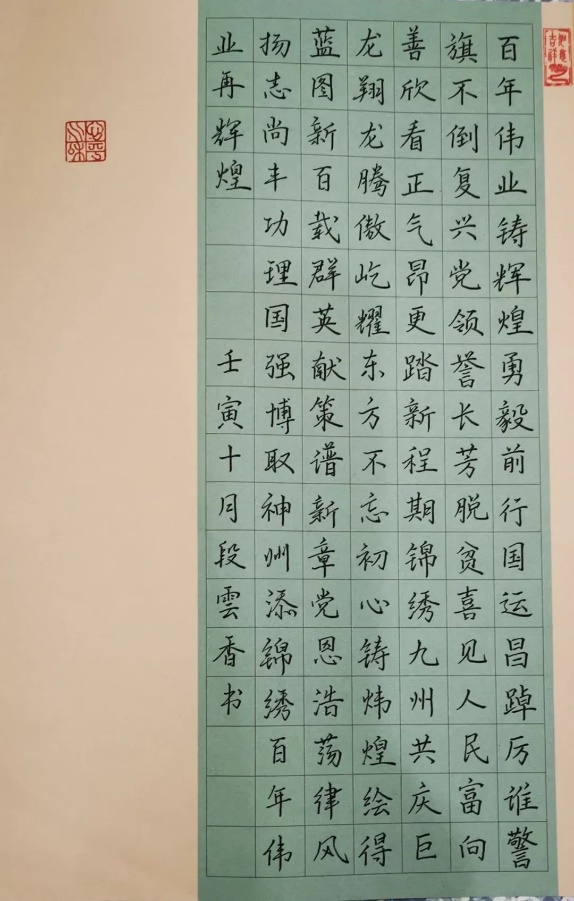 百年伟业铸辉煌勇毅前行国运昌踔厉谁警
旗不倒复兴党领誉长芳脱贫喜见人民富向
善欣看正气昂更踏新程期锦绣九州共庆巨
龙翔龙腾傲屹耀东方不忘初心铸炜煌绘得
蓝图新百载群英献策谱新章党恩浩荡律风
扬志尚丰功理国强博取神州添锦绣百年伟
业再辉煌
壬寅十月段雲香书